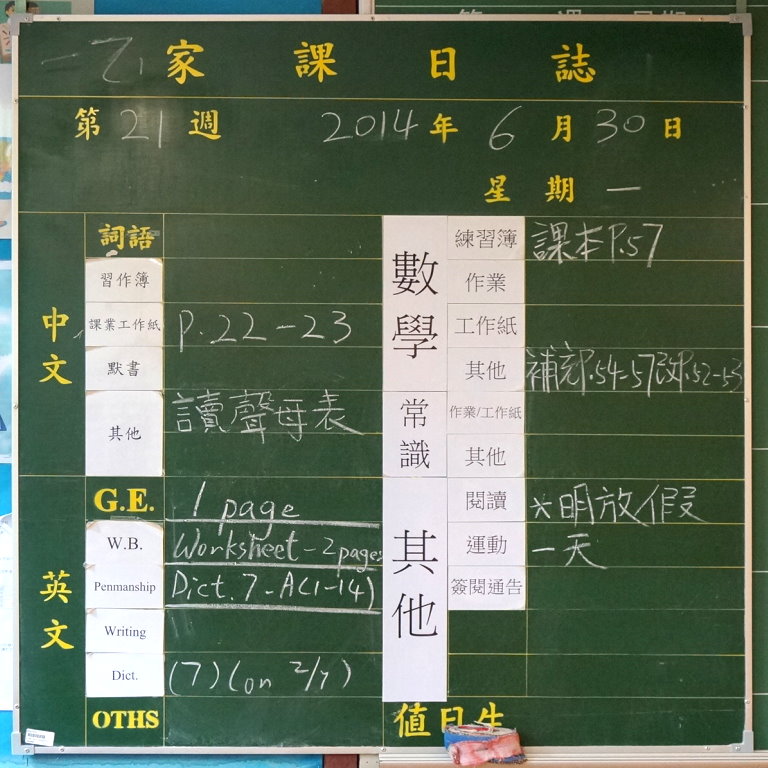 一乙 家課日誌
第21週 2014年6月30日
星期一
中文
詞語
習作簿
課業工作紙 P.22-23
默書
其他 讀聲母表
英文
G.E. 1 page
W.B. Worksheet - 2 pages
Penmanship Dict. 7 - A(1-14)
Writing
Dict. (7) (on 2/7)
OTHS
數學
練習簿 課本P.57
作業
工作紙
其他 補充P.54-57改P.52-53
常識
作業/工作紙
其他
其他
閱讀 *明放假
運動 一天
簽閱通告
值日生